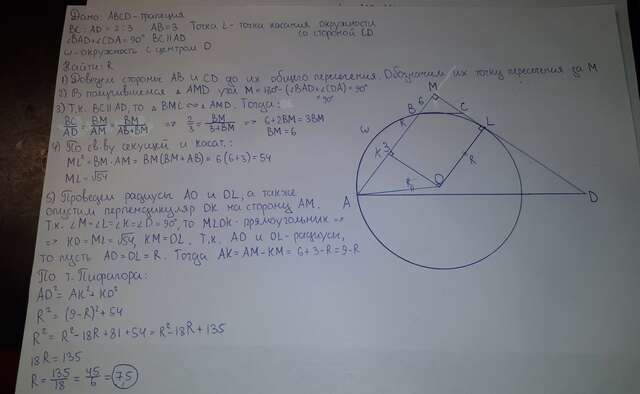 Дано: ABCD-трапеция
BC:AD=2:3 AB=3 Точка L-точка касания окружности
со стороной CD
∠BAD+∠CDA=90° BC∥AD
ω-окружность с центром O
Найти: R
1) Доведём стороны AB и CD до их общего пересечения. Обозначим их точку пересечения за M
2) В получившемся △AMD угол M=180°-(∠BAD+∠CDA)=90°
=90°
3) Т.к. BC∥AD, то △BMC∾△AMD. Тогда:
BC/AD = BM/AM = BM/AB+BM ⇒ 2/3 = BM/3+BM ⇒ 6+2BM=3BM
BM=6
4) По св.ву секущей и касат.:
ML²=BM·AM=BM(BM+AB)=6(6+3)=54
ML=√54
5) Проведём радиусы AO и OL, а также
опустим перпендикуляр OK на сторону AM.
Т.к. ∠M=∠L=∠K=∠O=90°, то MLOK-прямоугольник ⇒
⇒ KO=ML=√54, KM=OL. Т.к. AO и OL-радиусы,
то пусть AO=OL=R. Тогда AK=AM-KM=6+3-R=9-R
По т. Пифагора:
AO²=AK²+KO²
R²=(9-R)²+54
R²=R²-18R+81+54=R²-18R+135
18R=135
R=135/18=45/6=7,5
M
6
B
C
ω
R
L
K
3
R
O
R
A
D